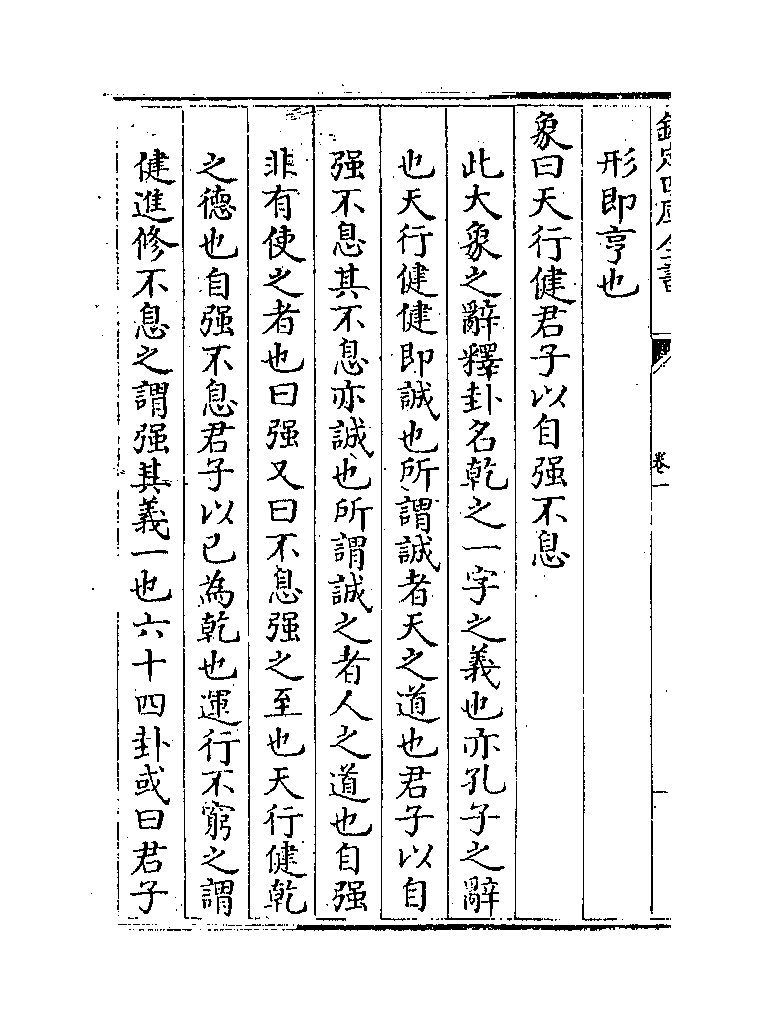 欽定四庫全書
卷一
形即亨也
象曰天行健君子以自强不息
此大象之辭釋卦名乾之一字之義也亦孔子之辭
也天行健健即誠也所謂誠者天之道也君子以自
强不息其不息亦誠也所謂誠之者人之道也自强
非有使之者也曰强又曰不息强之至也天行健乾
之德也自强不息君子以己為乾也運行不窮之謂
健進修不息之謂强其義一也六十四卦或曰君子